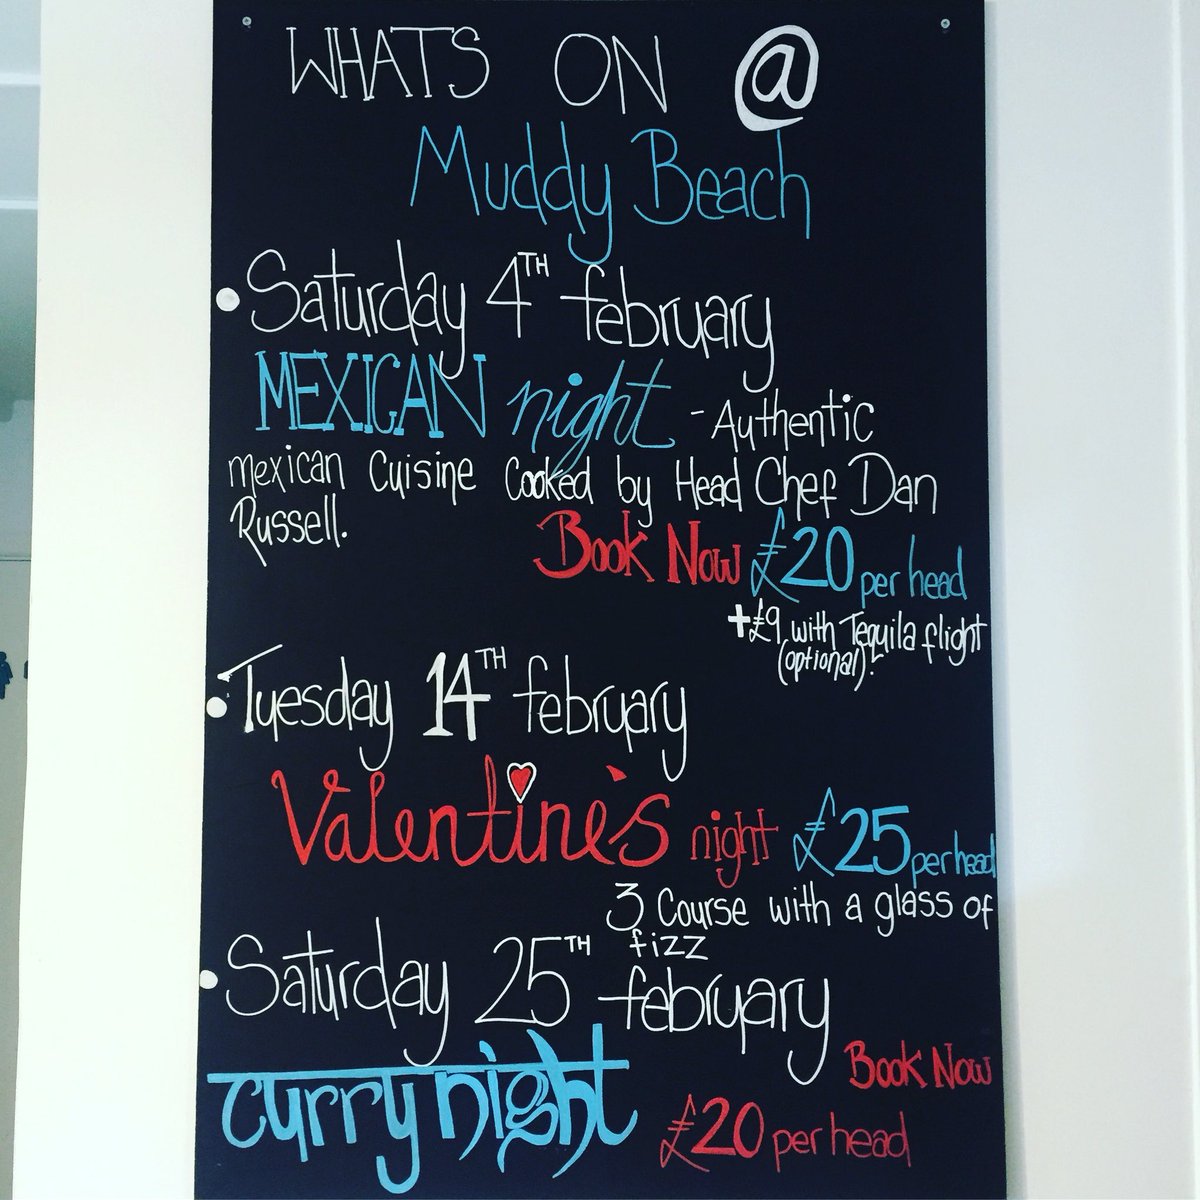 WHATS ON @
Muddy Beach
• Saturday 4TH february
MEXICAN night - Authentic
mexican Cuisine Cooked by Head Chef Dan
Russell.
Book Now £20 per head
+£9 with Tequila flight
(optional).
• Tuesday 14TH february
Valentine's night £25 per head
3 Course with a glass of
fizz
• Saturday 25TH february
Book Now
curry night
£20 per head